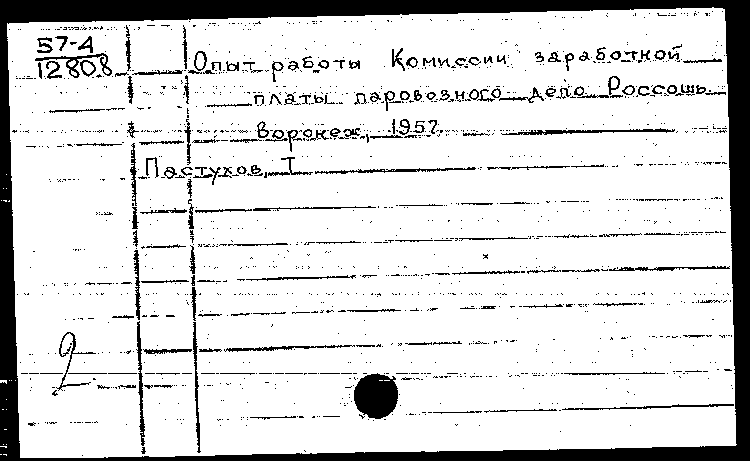 57-4
12808
Опыт работы Комиссии заработной
платы паровозного депо Россошь
Воронеж, 1957
Пастухов, Т
2